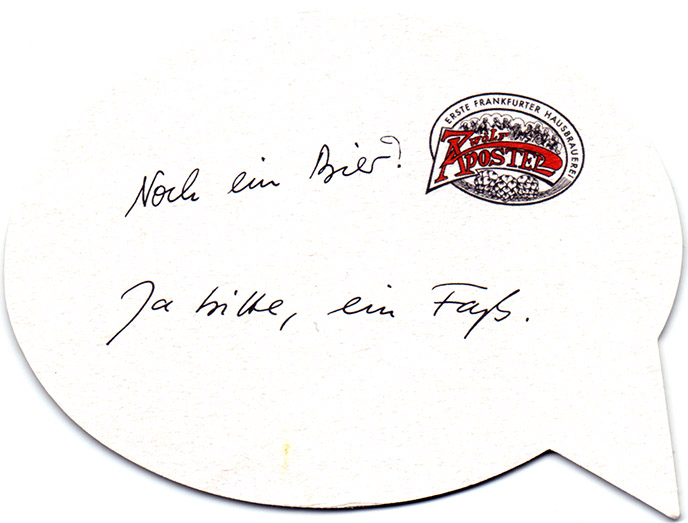 ERSTE FRANKFURTER HAUSBRAUEREI
Zwölf
APOSTEL
Noch ein Bier?
Ja bitte, ein Faß.